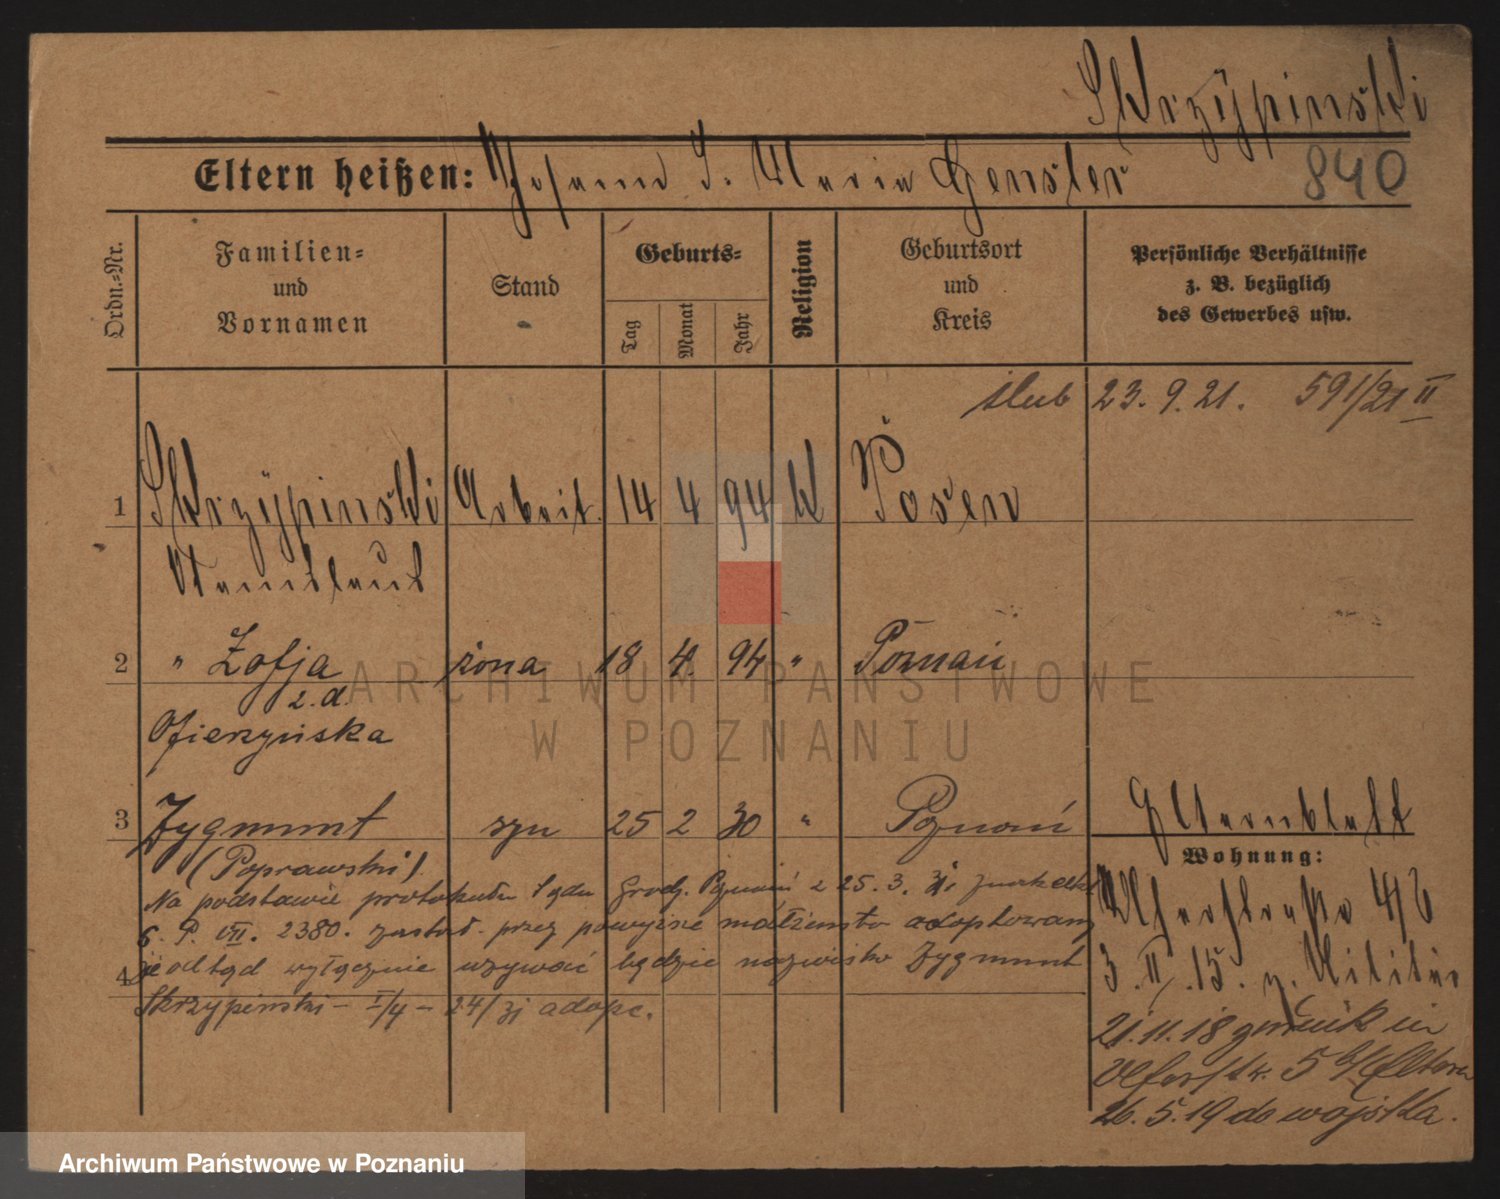 Skrzÿpinski
840
Eltern heißen: Johann u. Maria Gensler
Ordn.-Nr.
Familien-
und
Vornamen
Stand
Geburts-
Tag
Monat
Jahr
Religion
Geburtsort
und
Kreis
Persönliche Verhältnisse
z. B. bezüglich
des Gewerbes usw.
ślub 23. 9. 21. 591/21 II
1 Skrzÿpinski Arbeit. 14 4 94 K Posen
Stanislaus
2 " Zofja żona 18 4. 94 " Poznań
z. d.
3 Zygmunt syn 25 2 30 " Poznań
(Poprawski).
Na podstawie protokułu Sądu Grodz. Poznań z 25. 3. 31
6. P. VII. 2380. został przez powyższe małżeństwo adoptowany
4 i odtąd wyłącznie używać będzie nazwisko Zygmunt
Skrzypiński – I/4 – 24/31 adopc.
Elternblatt
Wohnung:
3. II. 15. z. Militär
21.11.18 zurück in
Eltern
26. 5. 19 do wojska.
ARCHIWUM PAŃSTWOWE
W POZNANIU
Archiwum Państwowe w Poznaniu